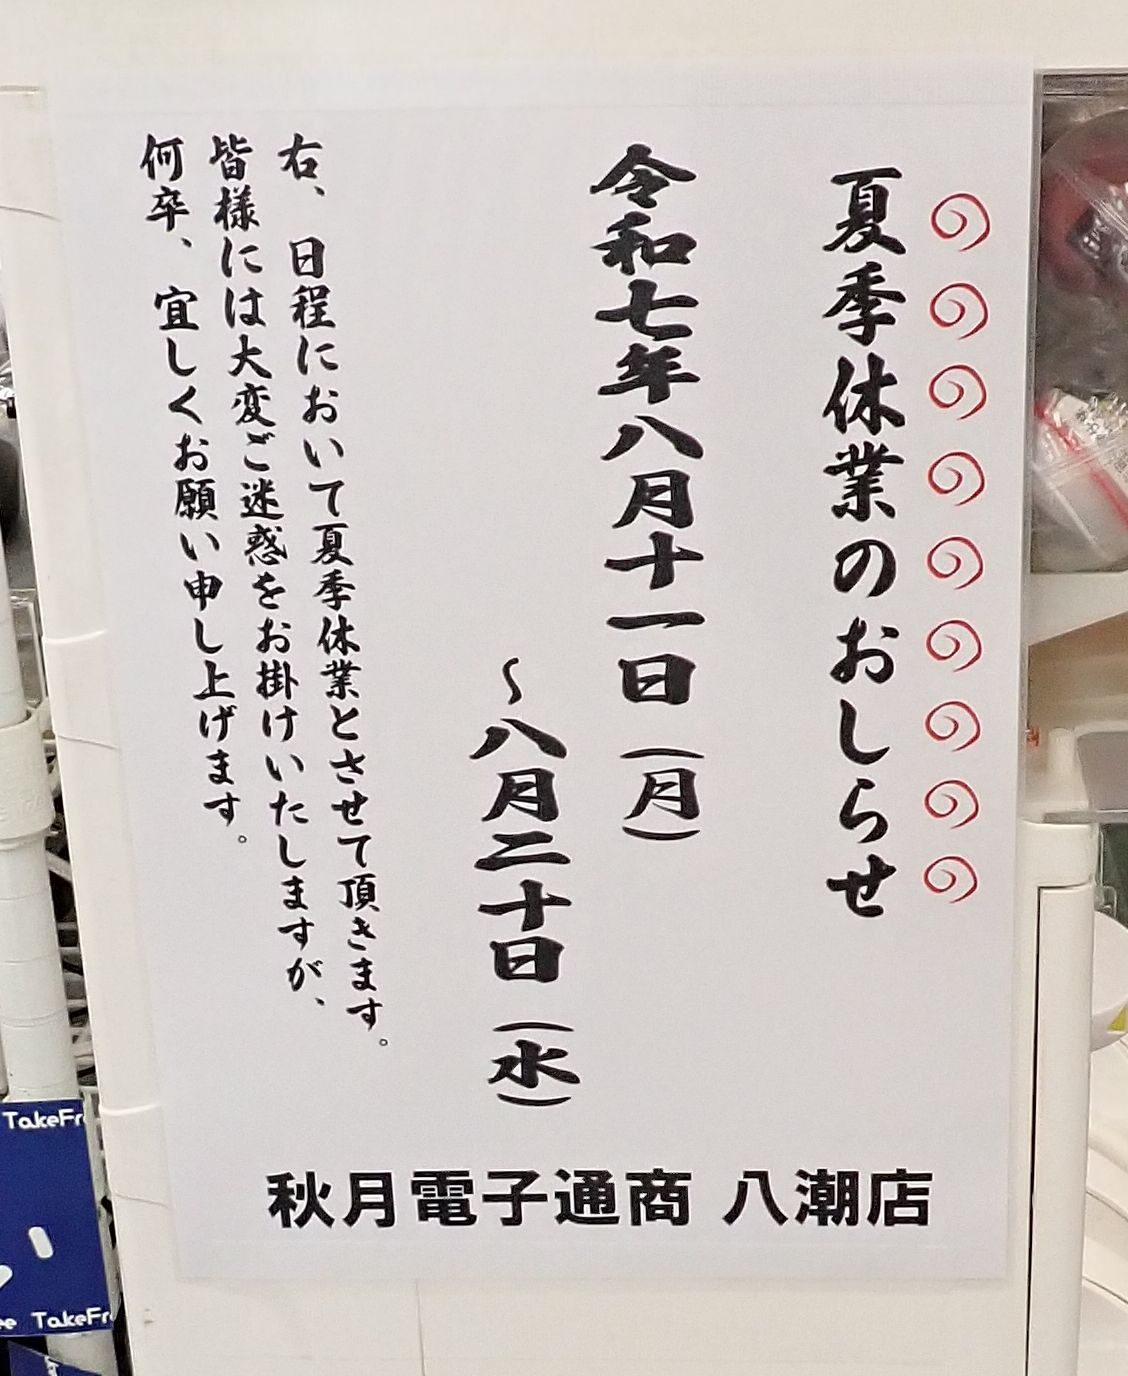 夏季休業のおしらせ
令和七年八月十一日(月)
～八月二十日(水)
右、日程において夏季休業とさせて頂きます。
皆様には大変ご迷惑をお掛けいたしますが、
何卒、宜しくお願い申し上げます。
秋月電子通商 八潮店
TakeFr
ee TakeFr